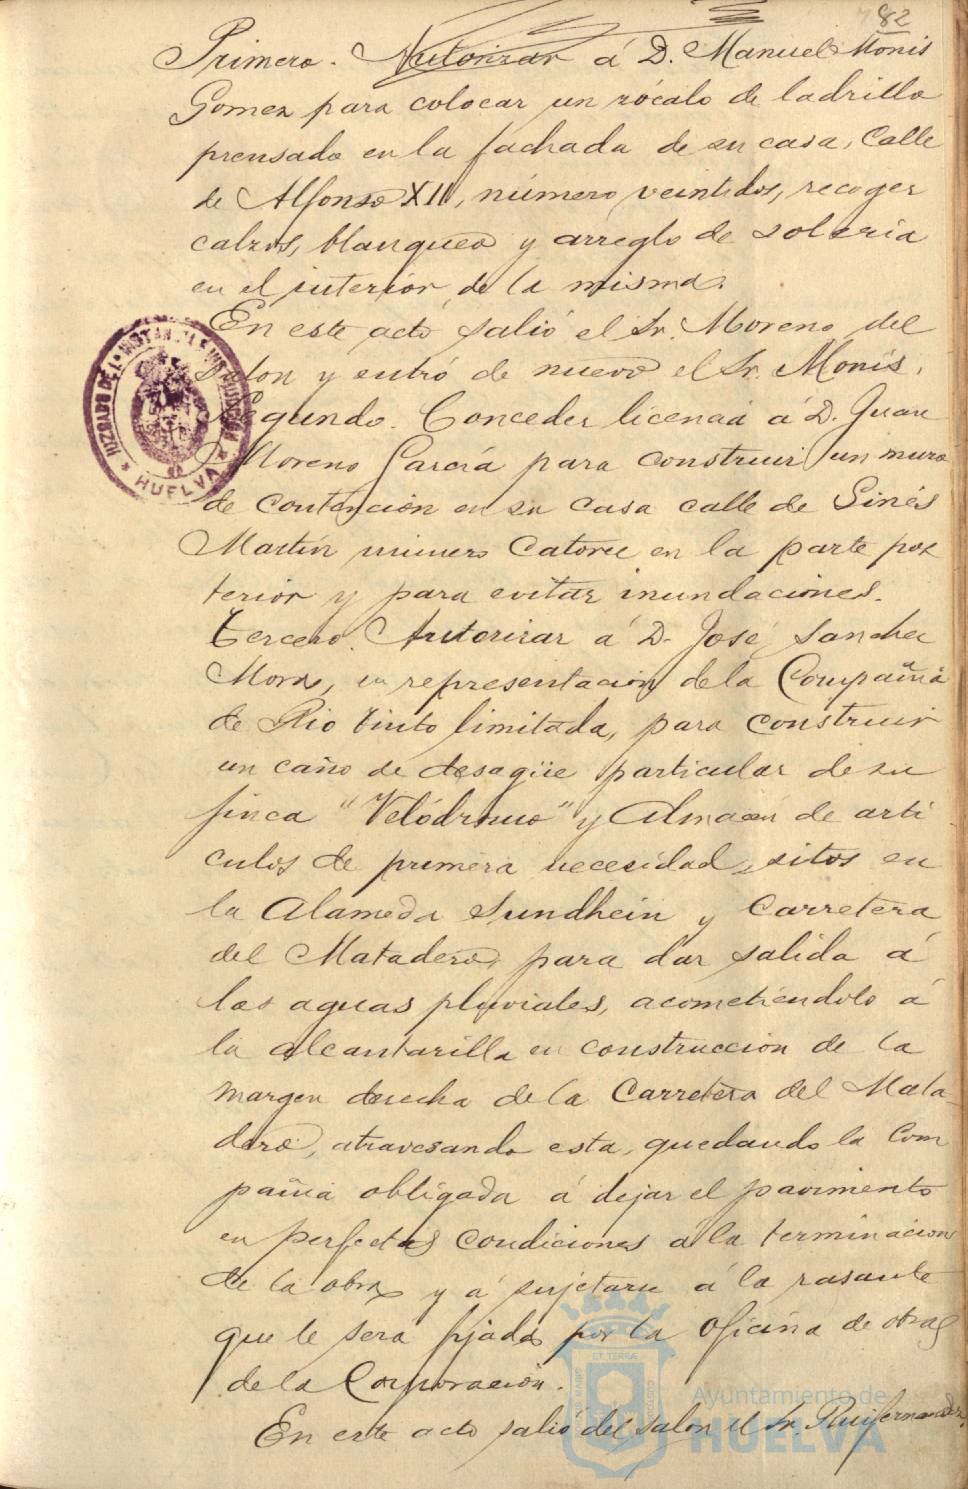 82
Primero. Autorizar á D. Manuel Monis
Gomez para colocar un zócalo de ladrillo
prensado en la fachada de su casa, Calle
de Alfonso XII, número veintidos, recoger
calzos, blanqueo y arreglo de soleria
en el interior de la misma.
En este acto salió el Sr. Moreno del
salon y entró de nuevo el Sr. Monís.
Segundo. Conceder licencia á D. Juan
Moreno García para construir un muro
de contención en su casa calle de Ginés
Martín número Catorce en la parte pos
terior y para evitar inundaciones.
Tercero. Autorizar á D. José Sanchez
Mora, en representación de la Compañia
de Rio Tinto limitada, para construir
un caño de desagüe particular de su
finca "Velódromo" y Almacen de arti
culos de primera necesidad, sitos en
la Alameda Sundhein y Carretera
del Matadero, para dar salida á
las aguas pluviales, acometiéndolo á
la alcantarilla en construccion de la
margen derecha de la Carretera del Mata-
dero, atravesando esta, quedando la Com
pañia obligada á dejar el pavimento
en perfectas condiciones á la terminacion
de la obra y á sujetarse á la rasante
que le será fijada por la oficina de obras
de la Corporación.
En este acto salió del salon el Sr. Ruifernandez
JUZGADO DE 1ª INSTANCIA E INSTRUCCION
HUELVA
ET TERRAE
Ayuntamiento de
HUELVA